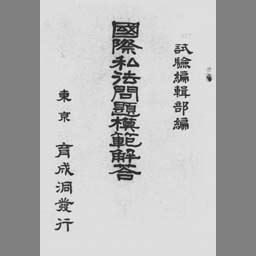 試驗編輯部編
國際私法問題模範解答
東京 育成洞發行